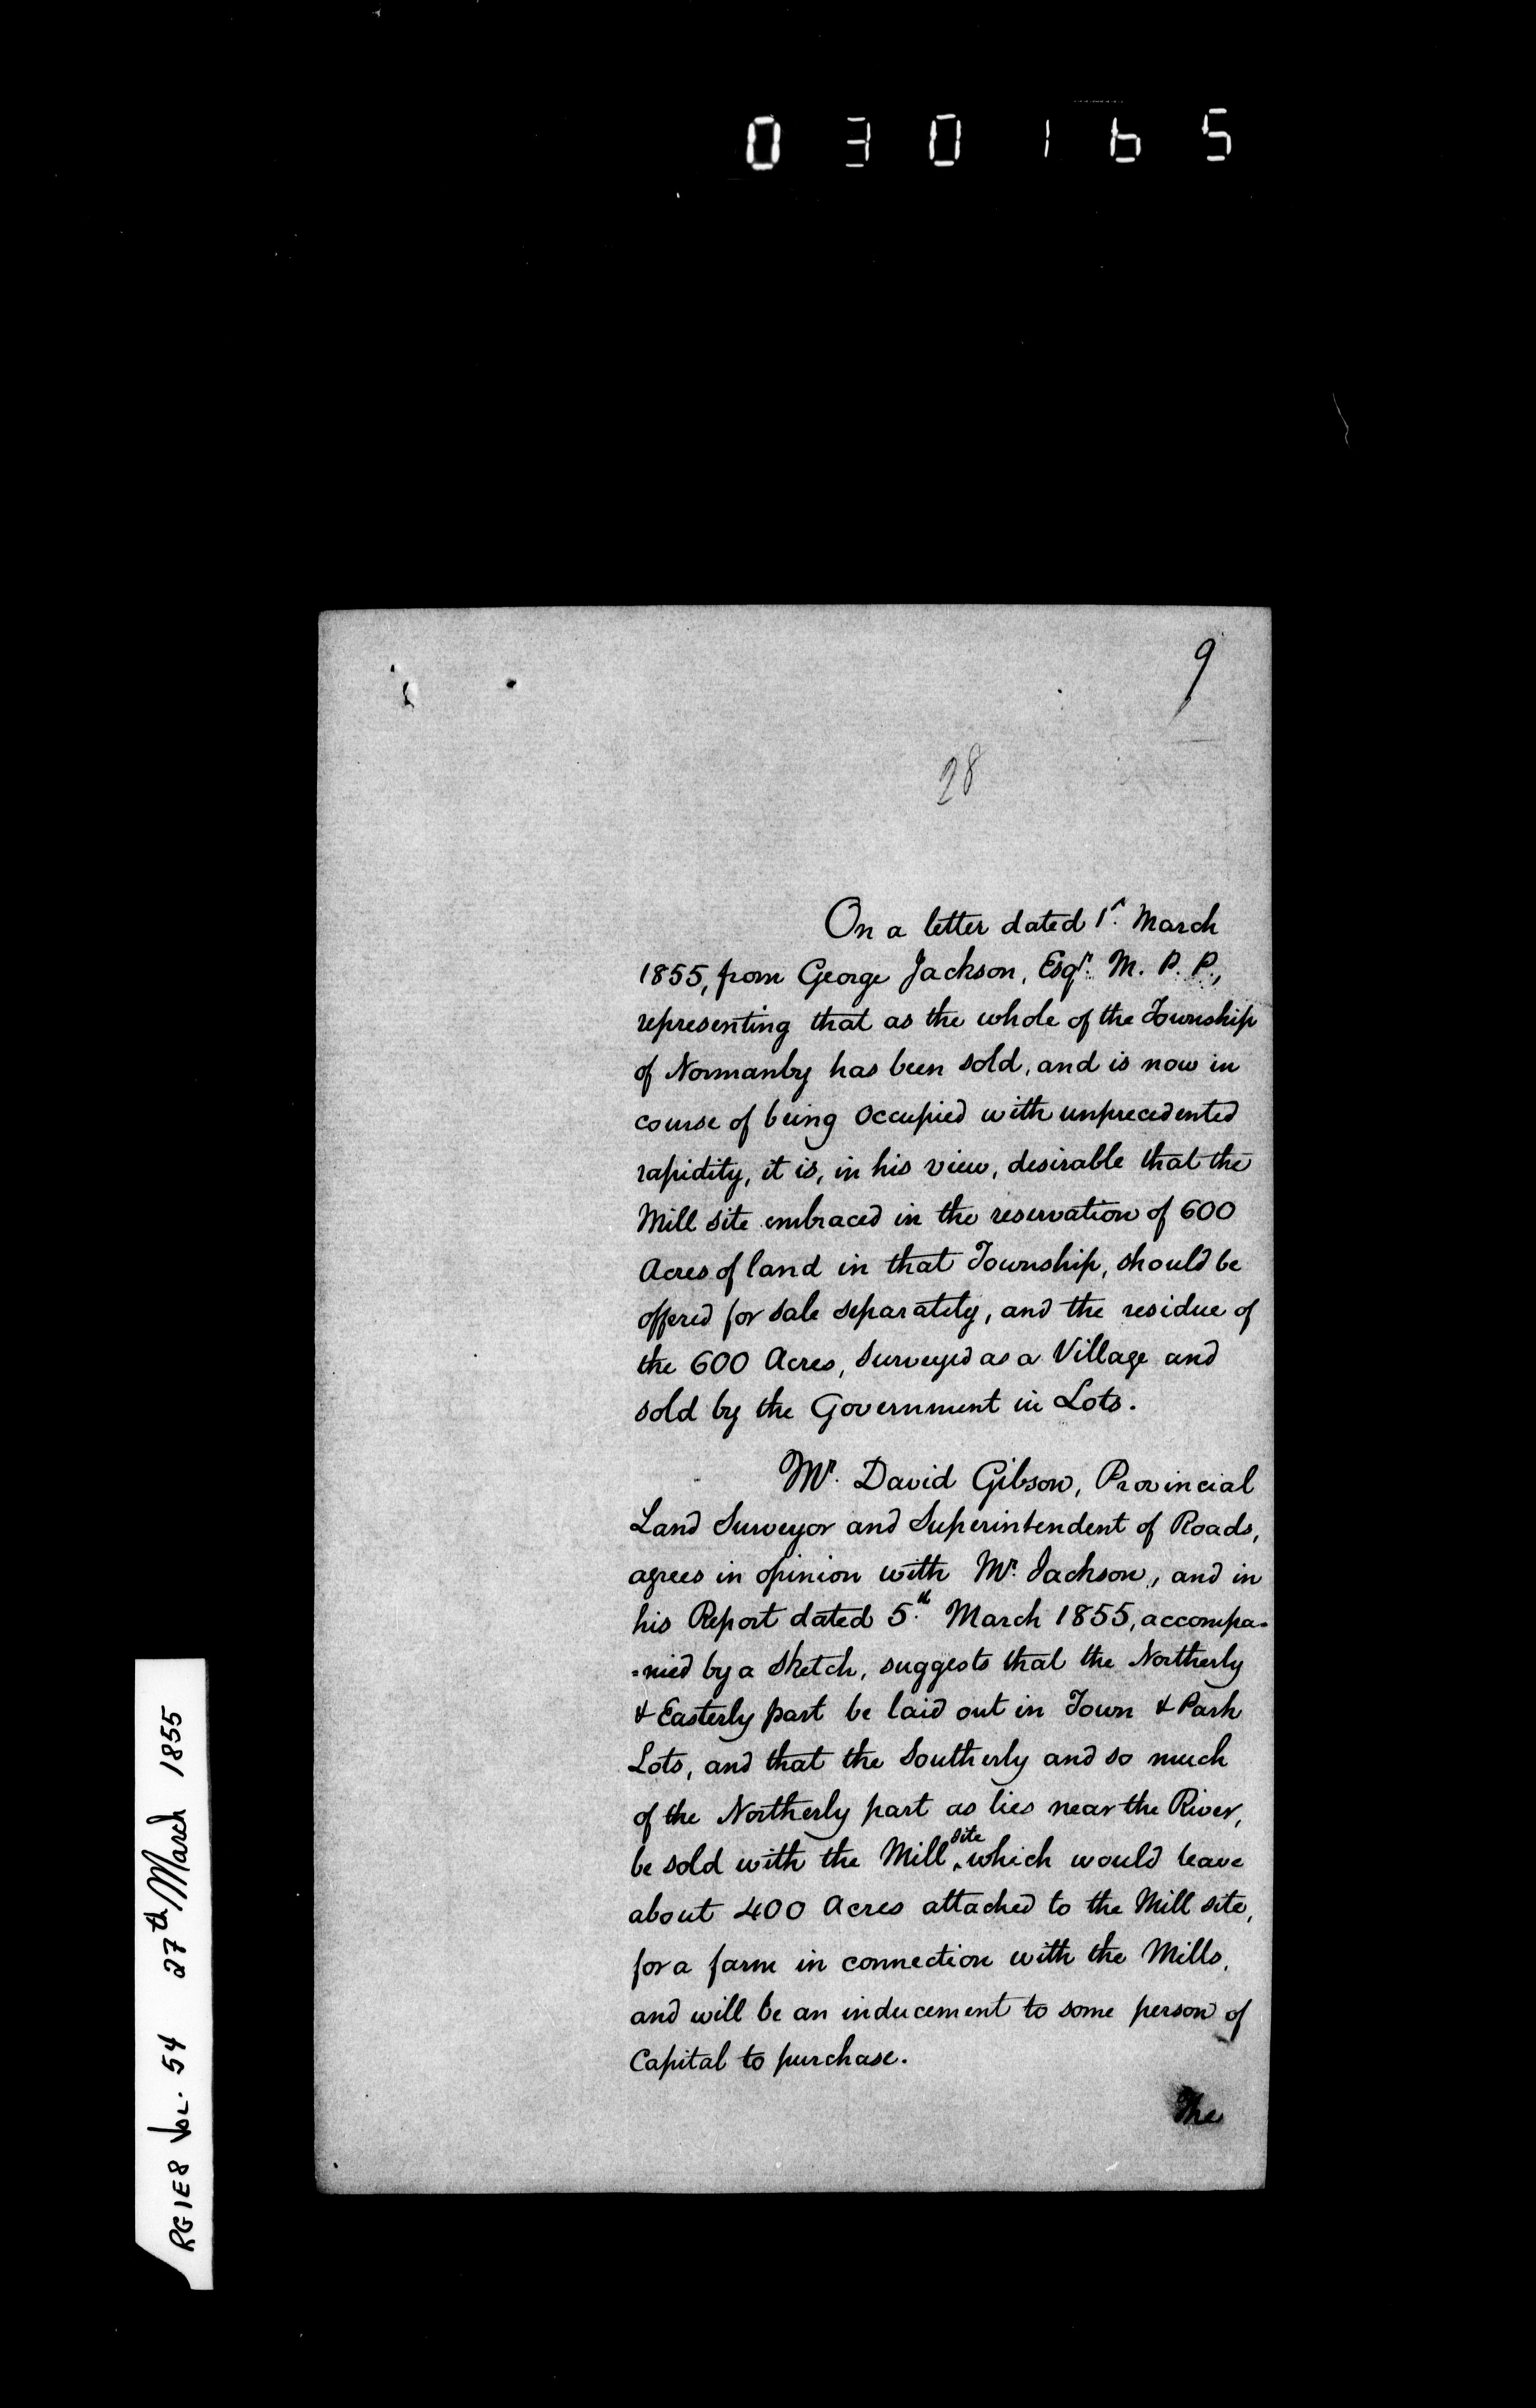 030165
9
28
On a letter dated 1st. March
1855, from George Jackson, Esqr. M. P. P.,
representing that as the whole of the Township
of Normanby has been sold, and is now in
course of being occupied with unprecedented
rapidity, it is, in his view, desirable that the
Mill site embraced in the reservation of 600
Acres of land in that Township, should be
offered for sale separately, and the residue of
the 600 Acres, surveyed as a Village and
sold by the Government in Lots.
Mr. David Gibson, Provincial
Land Surveyor and Superintendent of Roads,
agrees in opinion with Mr. Jackson, and in
his Report dated 5.th March 1855, accompa=
=nied by a sketch, suggests that the Northerly
& Easterly part be laid out in Town & Park
Lots, and that the Southerly and so much
of the Northerly part as lies near the River,
be sold with the Mill site which would leave
about 400 Acres attached to the Mill site,
for a farm in connection with the Mills,
and will be an inducement to some person of
Capital to purchase.
The
RG1E8 Vol. 54 27th March 1855